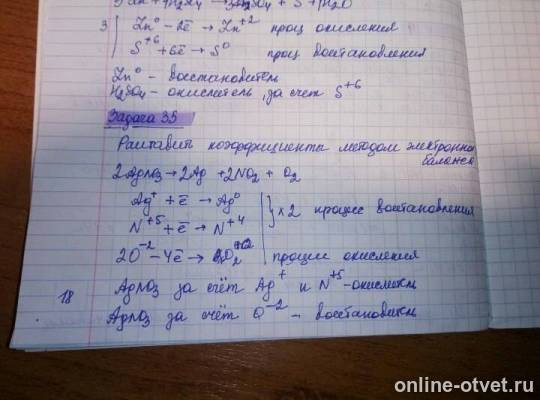 3Zn + 4H2SO4 → 3ZnSO4 + S + 4H2O
3 | Zn⁰ - 2ē → Zn⁺² проц окисления
S⁺⁶ + 6ē → S⁰ проц восстановления
Zn⁰ - восстановитель
H2SO4 - окислитель, за счет S⁺⁶
Задача 35
Раставить коэффициенты методом электронно
баланса
2AgNO3 → 2Ag + 2NO2 + O2
Ag⁺ + ē → Ag⁰
} x2 процесс восстановления
N⁺⁵ + ē → N⁺⁴
2O⁻² - 4ē → O2⁰ процесс окисления
AgNO3 за счёт Ag⁺ и N⁺⁵ - окислитель
18
AgNO3 за счёт O⁻² - восстановитель
online-otvet.ru